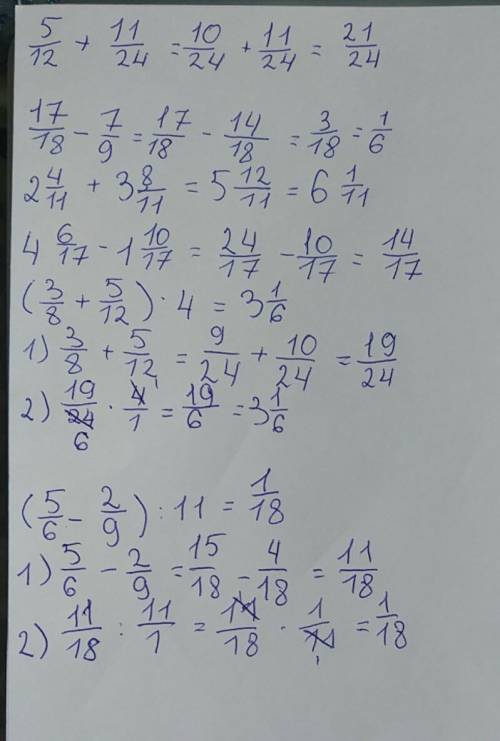 5/12 + 11/24 = 10/24 + 11/24 = 21/24
17/18 - 7/9 = 17/18 - 14/18 = 3/18 = 1/6
2 4/11 + 3 8/11 = 5 12/11 = 6 1/11
4 6/17 - 1 10/17 = 24/17 - 10/17 = 14/17
(3/8 + 5/12) · 4 = 3 1/6
1) 3/8 + 5/12 = 9/24 + 10/24 = 19/24
2) 19/24 6 · 4/1 1 = 19/6 = 3 1/6
(5/6 - 2/9) : 11 = 1/18
1) 5/6 - 2/9 = 15/18 - 4/18 = 11/18
2) 11/18 : 11/1 = 11/18 1 · 1/11 1 = 1/18